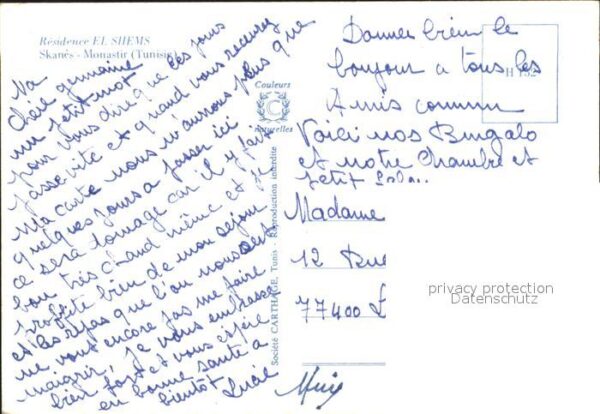 Résidence EL SHEMS
Skanès - Monastir (Tunisie)
Ma
chère germaine
un petit mot
pour vous dire que les jours
passe vite et quand vous recevrez
Ma carte nous n'aurons plus que
quelques jours a passer ici
ce sera domage car il y fait
bon très chaud même et je
profite bien de mon séjour
et les repas que l'on nous sert
ne vont encore pas me faire
maigrir, je vous embrasse
bien fort et vous espère
en bonne santé a
bientôt Lucie
Couleurs
C
naturelles
Société CARTHAGE, Tunis - Reproduction interdite
Donner bien le
bonjour a tous les
Amis commun
Voici nos Bungalo
et notre Chambre et
petit
H 152
Madame
12 Rue
77400 L
privacy protection
Datenschutz